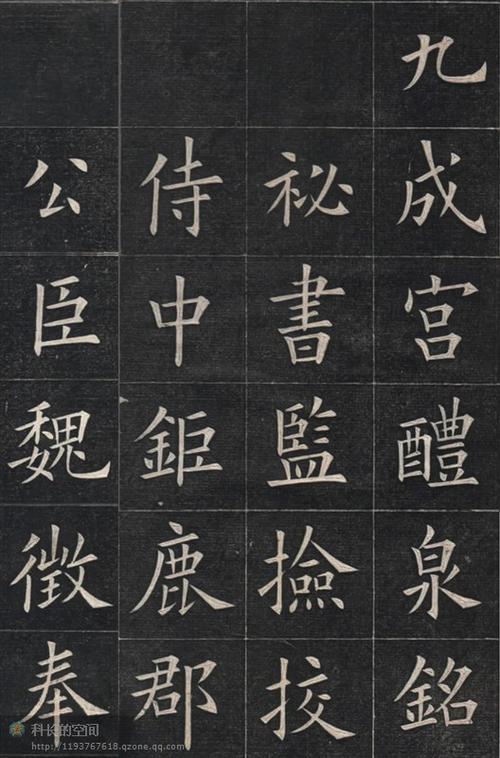 九成宫醴泉銘
祕書監撿挍
侍中鉅鹿郡
公臣魏徵奉
科长的空间
http://1193767618.qzone.qq.com